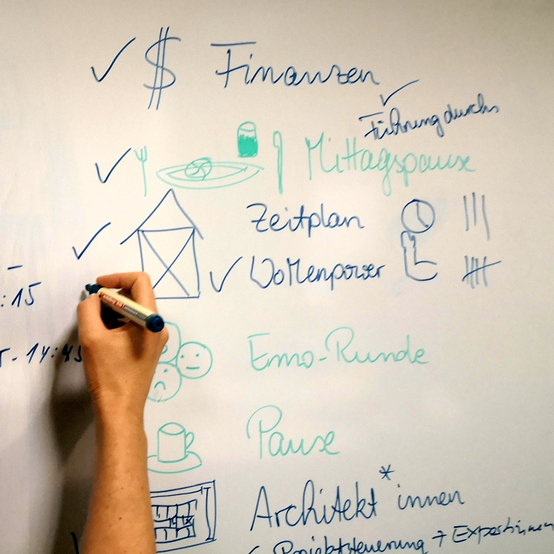 $ Finanzen
Führung durchs
Mittagspause
Zeitplan
Wollenpower
:15
- 14:45
Emo-Runde
Pause
Architekt*innen
Projektsteuerung + Expertinnen